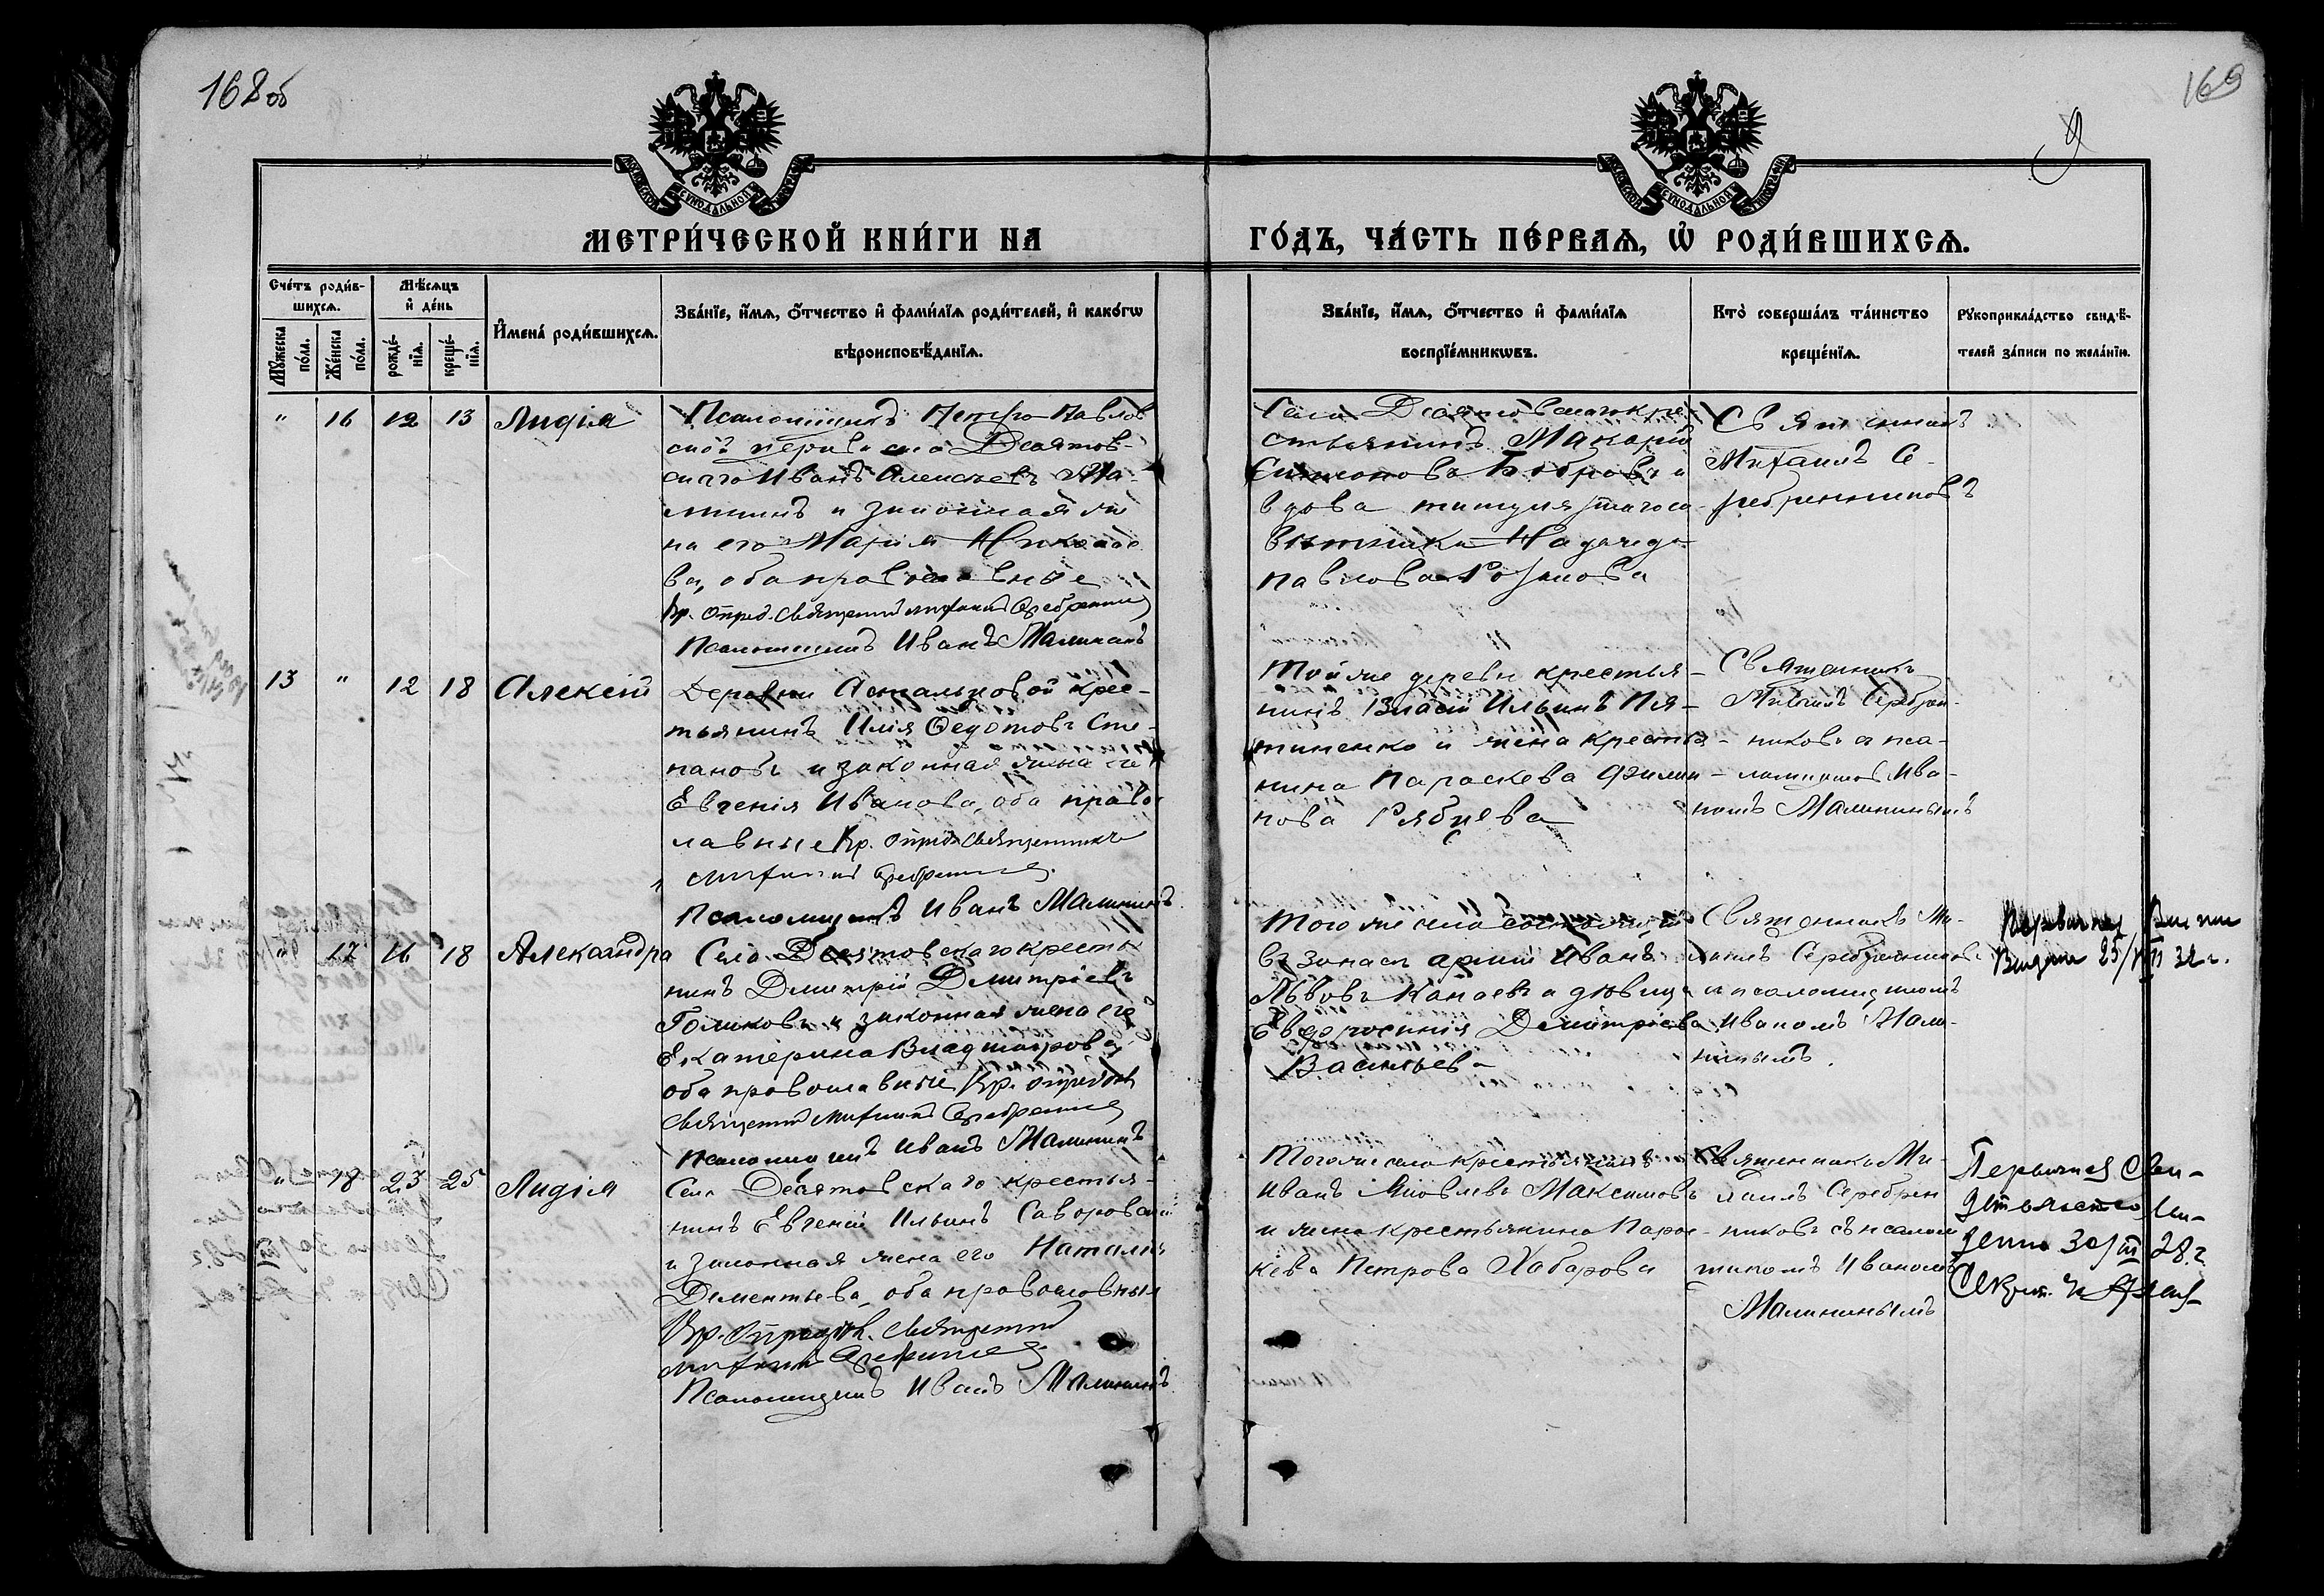 168об
169
9
МЕТРИ́ЧЕСКОЙ КНИ́ГИ НА ГО́ДЪ, ЧА́СТЬ ПЕ́РВАѦ, Ѡ҆ РОДИ́ВШИХСѦ.
Сче́тъ роди́в-
шихсѧ.
Мꙋжеска по́ла.
Же́нска по́ла.
Мѣ́сѧцъ
и҆ де́нь
рожде́-
нїѧ.
креще́-
нїѧ.
И҆мена̀ роди́вшихсѧ.
Зва́нїе, и҆́мѧ, ѻ҆́тчество и҆ фами́лїѧ роди́телей, и҆ како́гѡ
вѣроисповѣ́данїѧ.
Зва́нїе, и҆́мѧ, ѻ҆́тчество и҆ фами́лїѧ
воспрїе́мникѡвъ.
Кто̀ соверша́лъ та́инство
креще́нїѧ.
Рꙋкоприкла́дство свидѣ́-
телей за́писи по жела́нїю.
" 16 12 13 Лидія
Псаломщикъ Петро-Павлов
ской церкви села Десятов-
скаго Иванъ Алексеевъ Ма-
лининъ и законная же
на его Марія Николае
ва, оба православные
Священникъ Михаилъ
Псаломщикъ Иванъ Малининъ
Села Десятовскаго кре-
стьянинъ Макарій
Симоновъ Бобровъ и
вдова титулярнаго со-
вѣтника Надежда
Павлова
Священникъ
Михаилъ Се-
ребренниковъ
13 " 12 18 Алексій
Деревни крес-
тьянинъ Илія Ѳедотовъ Сте-
пановъ и законная жена его
Евгенія Иванова, оба право-
лавные Священникъ
Михаилъ
Псаломщикъ Иванъ Малининъ
Той же дерев. крестья-
нинъ Власій Ильинъ Пя-
тиненко и жена крестья-
нина Параскева Филип-
пова Рябцева
Священникъ
Михаилъ Серебрен-
никовъ съ пса-
ломщикомъ Ива-
номъ Малининымъ
" 17 16 18 Александра
Села Десятовскаго крестья
нинъ Димитрій Димитріевъ
Голиковъ и законная жена его
Екатерина Владимірова,
оба православные
Священникъ Михаилъ
Псаломщикъ Иванъ Малининъ
Того же села состоящій
въ запасѣ арміи Иванъ
Львовъ Канаевъ и дѣвица
Евфросинія Димитріева
Васильева
Священникъ Ми-
хаилъ Серебренниковъ
и псаломщикомъ
Иваномъ Мали-
нинымъ.
Выпис
Выдана 25/VII 32 г.
" 18 23 25 Лидія
Села Десятовскаго крестья-
нинъ Евгеній Ильинъ
и законная жена его Наталія
Дементьева, оба православныя
Священникъ
Михаилъ
Псаломщикъ Иванъ Малининъ
Того же села крестьянинъ
Иванъ Яковлевъ Максимовъ
и жена крестьянина Парас-
кева Петрова Хабарова
Священникъ Ми-
хаилъ Серебрен
никовъ съ псалом
щикомъ Иваномъ
Малининымъ
Первичная Сви-
детельство вы-
дано 30/III 28 г.